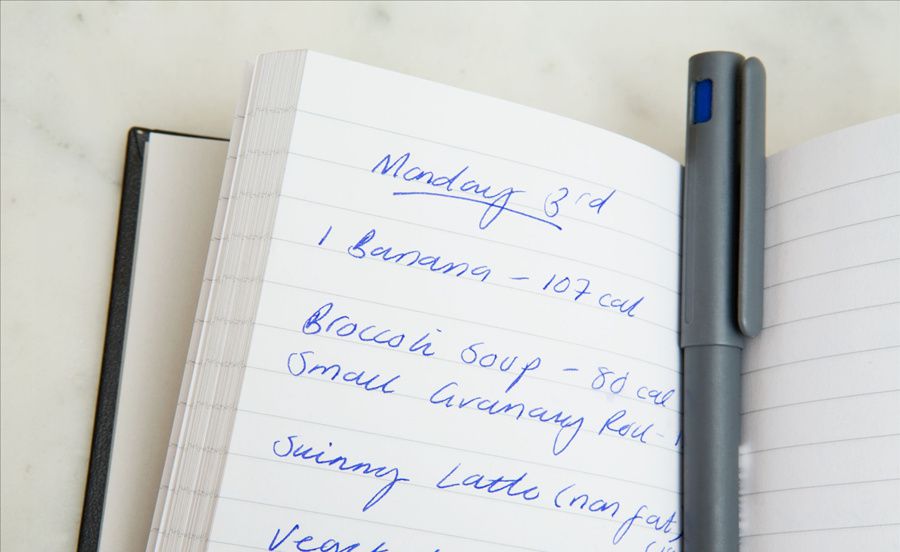 Monday 3rd
1 Banana - 107 cal
Broccoli Soup - 80 cal
Small Granary Roll - 1
Skinny Latte (non fat)